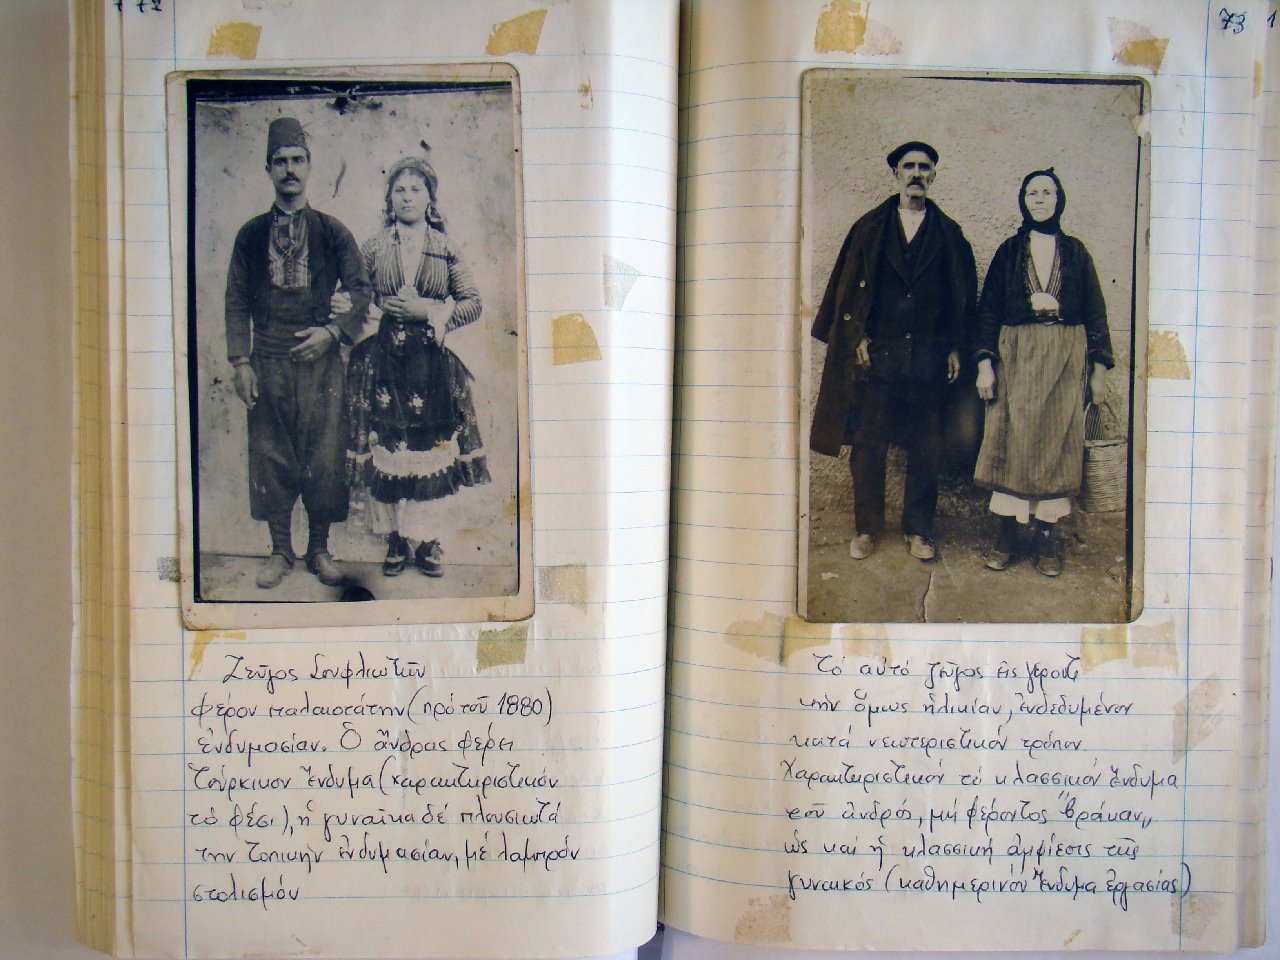 Ζεῦγος Σουφλιωτῶν
φέρον παλαιοτάτην (πρό τοῦ 1880)
ἐνδυμασίαν. Ὁ ἄνδρας φέρει
Τούρκικον ἔνδυμα (χαρακτηριστικόν
τό φέσι), ἡ γυναῖκα δέ πλουσιωτά
την τοπικήν ἐνδυμασίαν, μέ λαμπρόν
στολισμόν
73
Τό αὐτό ζεῦγος εἰς γεροντι
κήν ὅμως ἡλικίαν, ἐνδεδυμένον
κατά νεωτεριστικόν τρόπον
Χαρακτηριστικόν τό κλασσικόν ἔνδυμα
τοῦ ἀνδρός, μή φέροντος "βράκαν„
ὡς καί ἡ κλασσική ἀμφίεσις τῆς
γυναικός (καθημερινόν ἔνδυμα ἐργασίας)